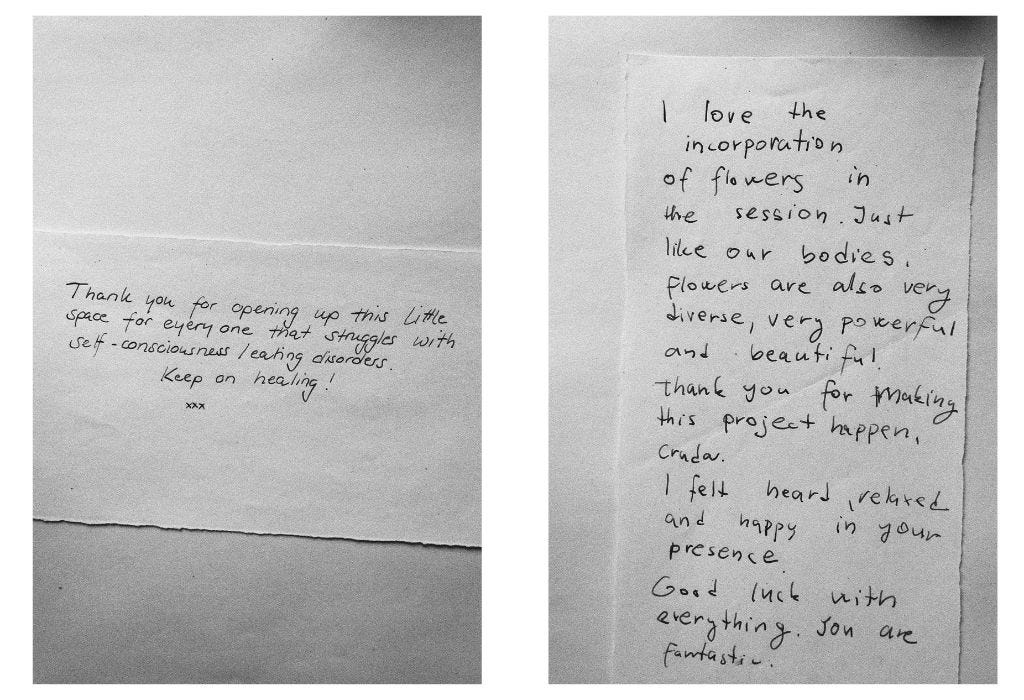 Thank you for opening up this little
space for everyone that struggles with
self-consciousness / eating disorders.
Keep on healing!
xxx
I love the
incorporation
of flowers in
the session. Just
like our bodies,
flowers are also very
diverse, very powerful
and beautiful.
Thank you for making
this project happen,
Cruda.
I felt heard, relaxed
and happy in your
presence.
Good luck with
everything. You are
fantastic.